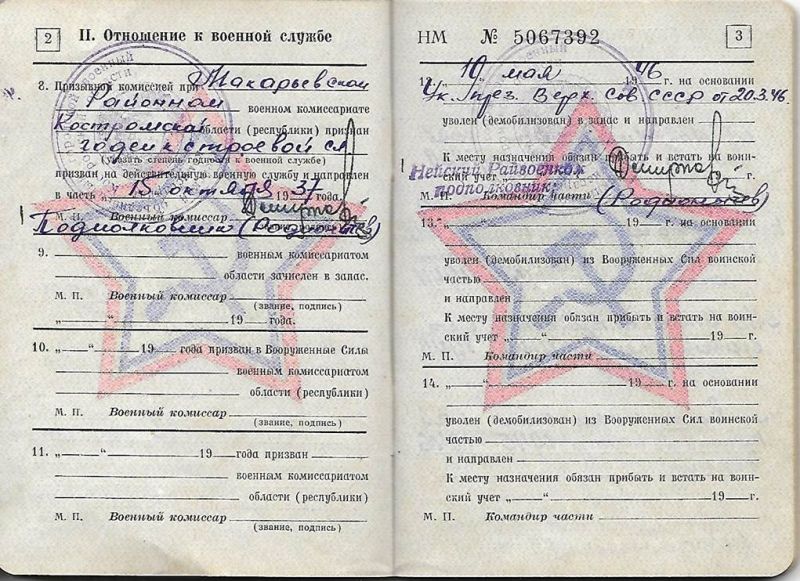 2
II. Отношение к военной службе
8. Призывной комиссией при Макарьевском
Районном военном комиссариате
Костромской области (республики) признан
годен к строевой сл
(указать степень годности к военной службе)
призван на действительную военную службу и направлен
в часть „15„ октября 1937 года.
М. П. Военный комиссар
Подполковник
9. военным комиссариатом
области зачислен в запас.
М. П. Военный комиссар
(звание, подпись)
„ “ 19 года.
10. „ “ 19 года призван в Вооруженные Силы
военным комиссариатом
области (республики)
М. П. Военный комиссар
(звание, подпись)
11. „ “ 19 года призван
военным комиссариатом
области (республики)
М. П. Военный комиссар
(звание, подпись)
НМ № 5067392
3
12. „10„ мая 1946 г. на основании
Ук. През. Верх. Сов СССР от 20.3.46.
уволен (демобилизован) в запас и направлен
К месту назначения обязан прибыть и встать на воин-
ский учет
Нейский Райвоенком
подполковник:
М. П. Командир части
13. 19 г. на основании
уволен (демобилизован) из Вооруженных Сил воинской
частью
и направлен
К месту назначения обязан прибыть и встать на воин-
ский учет „ “ 19 г.
М. П. Командир части
14. „ “ 19 г. на основании
уволен (демобилизован) из Вооруженных Сил воинской
частью
и направлен
К месту назначения обязан прибыть и встать на воин-
ский учет „ “ 19 г.
М. П. Командир части